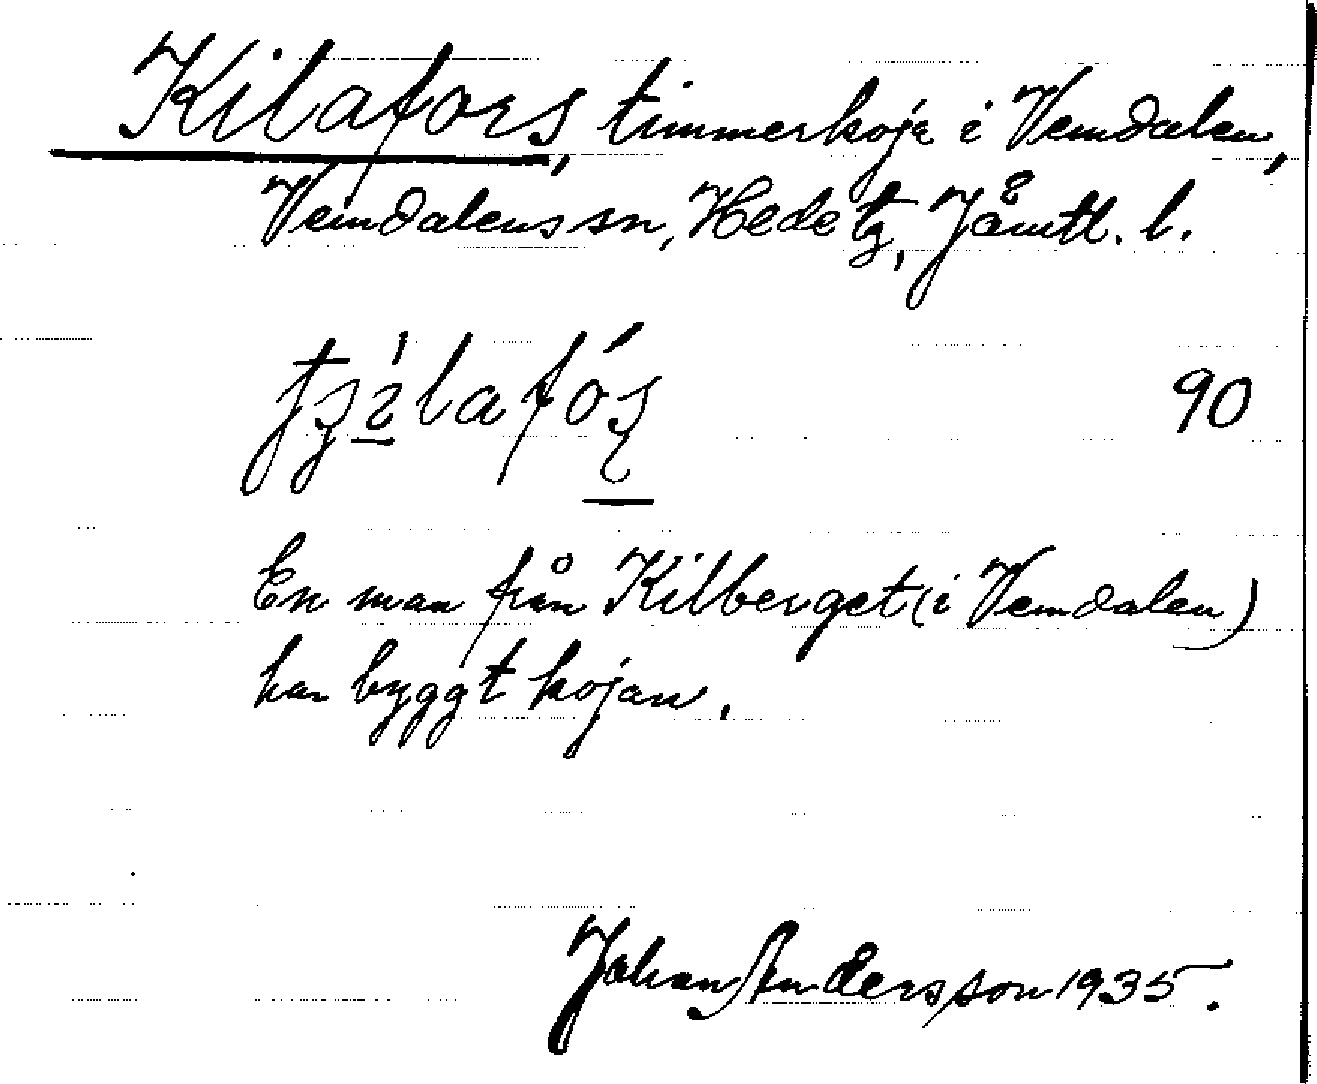 Kilafors, timmerkoja i Vemdalen,
Vemdalens sn, Hede tg, Jämtl. l.
90
En man från Kilberget (i Vemdalen)
har byggt kojan.
Johan Andersson 1935.